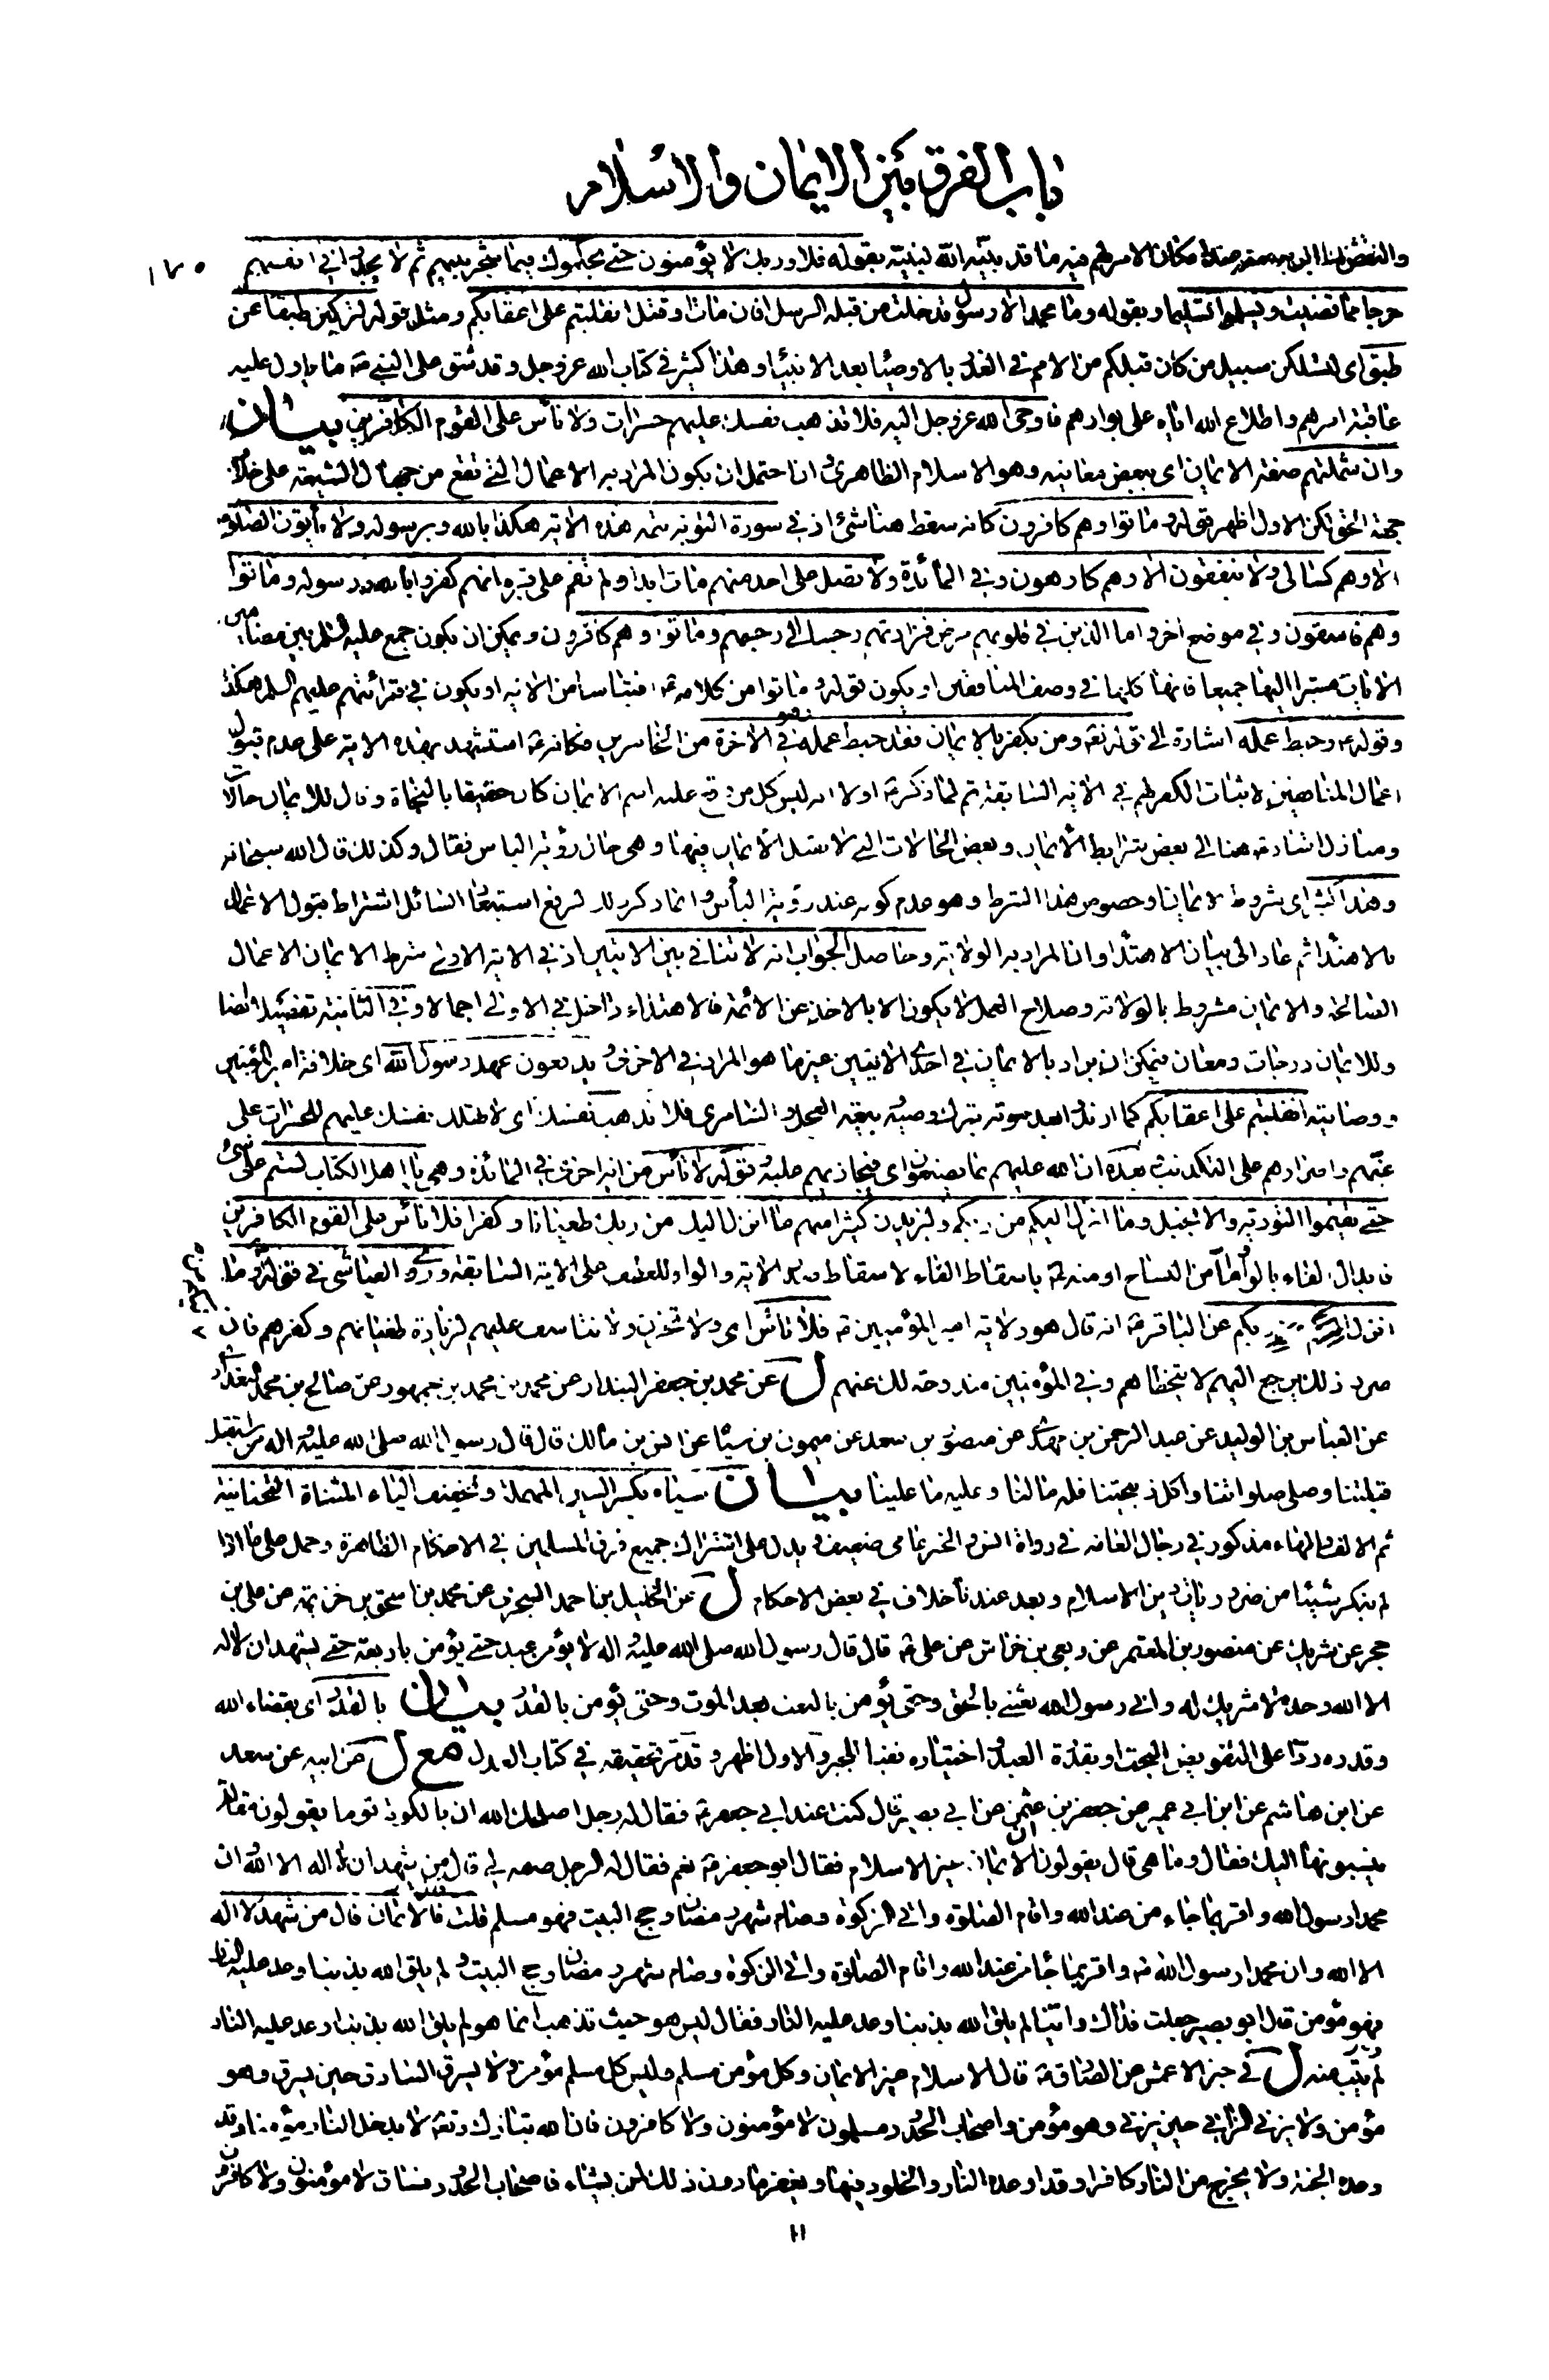 باب الفرق بين الايمان والاسلام
١٧٥
والنقض لهذا مكان الامر لهم فيه ما قد بيّنه الله لنبيّه بقوله فلا وربك لا يؤمنون حتى يحكموك فيما شجر بينهم ثم لا يجدوا في انفسهم
حرجا مما قضيت ويسلموا تسليما وبقوله وما محمد الا رسول قد خلت من قبله الرسل افان مات او قتل انقلبتم على اعقابكم ومثل قوله لتركبن طبقا عن
طبق اى لتسلكن سبيل من كان قبلكم من الامم في الغدر بالاوصياء بعد الانبياء وهذا كثير في كتاب الله عز وجل وقد شق على النبي ص ما يؤول عليه
عاقبة امرهم واطلاع الله اياه على بوارهم فاوحى الله عز وجل اليه فلا تذهب نفسك عليهم حسرات ولا تأس على القوم الكافرين بيان
وان شملتهم صفة الايمان اى ببعض معانيه وهو الاسلام الظاهرى وان احتمل ان يكون المراد به الاعمال التي تقع من جهال الشيعة على خلاف
جهة الحق لكن الاول اظهر قوله وماتوا وهم كافرون كانه سقط هنا شئ اذ في سورة التوبة تتمة هذه الاية هكذا بالله وبرسوله ولا يأتون الصلوة
الا وهم كسالى ولا ينفقون الا وهم كارهون وفي المائدة ولا تصل على احد منهم مات ابدا ولم تقم على قبره انهم كفروا بالله ورسوله وماتوا
وهم فاسقون وفي موضع اخر واما الذين في قلوبهم مرض فزادتهم رجسا الى رجسهم وماتوا وهم كافرون ويمكن ان يكون جمع عليه السلم بين مضامين
الايات مشيرا اليها جميعا فانها كلها في وصف المنافقين او يكون قوله وماتوا من كلامه ع اقتباسا من الاية او يكون في قرائتهم عليهم السلم هكذا
وقوله ع وحبط عمله اشارة الى قوله تعه ومن يكفر بالايمان فقد حبط عمله وهو في الاخرة من الخاسرين فكانه ع استشهد بهذه الاية على عدم قبول
اعمال المنافقين لاثبات الكفر لهم في الاية السابقة ثم لما ذكر ع اولا انه ليس كل من وقع عليه اسم الايمان كان حقيقا بالنجاة وقال للايمان حالات
ومنازل اشار ع هنا الى بعض شرايط الايمان وبعض الحالات التي لا يقبل الايمان فيها وهي حال رؤية الباس فقال وكذلك قال الله سبحانه
وهذا كثير اى شروط الايمان او خصوص هذا الشرط وهو عدم كونه عند رؤية البأس وانما ذكر ذلك لرفع استبعاد السائل اشتراط قبول الاعمال
بالاهتداء ثم عاد الى بيان الاهتداء وان المراد به الولاية وحاصل الجواب انه لا تنافي بين الايتين اذ في الاية الاولى شرط الايمان الاعمال
الصالحة والايمان مشروط بالولاية وصلاح العمل لا يكون الا بالاخذ عن الائمة فالاهتداء داخل في الاولى اجمالا وفي الثانية تفصيلا وايضا
وللايمان درجات ومعان فيمكن ان يراد بالايمان في احدى الايتين غير ما هو المراد في الاخرى يدفعون عهد رسول الله اى خلافة امير المؤمنين
ووصايته انقلبتم على اعقابكم كما ارتدوا بعد موته بترك وصيه ببيعة العجل والسامرى فلا تذهب نفسك اى لا تهلك نفسك عليهم للحسرات على
غيهم واصرارهم على التكذيب بعده ان الله عليهم بما يصنعون اى فيجازيهم عليه قوله لا تأس من اية اخرى في المائدة وهي يا اهل الكتاب لستم على شئ
حتى تقيموا التورية والانجيل وما انزل اليكم من ربكم وليزيدن كثيرا منهم ما انزل اليك من ربك طغيانا وكفرا فلا تأس على القوم الكافرين
فابدال الفاء بالواو اما من النساخ او منه ع باسقاط الفاء لاسقاط صدر الاية والواو للعطف على الاية السابقة وروى العياشى في قوله وما
انزل اليكم من ربكم عن الباقر ع انه قال هو ولاية امير المؤمنين ع فلا تأس اى ولا تحزن ولا تتأسف عليهم لزيادة طغيانهم وكفرهم فان
ضرر ذلك يرجع اليهم لا يتخطاهم وفي المؤمنين مندوحة لك عنهم ل عن محمد بن جعفر البندار عن محمد بن محمد بن جمهور عن صالح بن محمد البغدادى
عن العباس بن الوليد عن عبد الرحمن بن مهدى عن منصور بن سعد عن ميمون بن سياه عن انس بن مالك قال قال رسول الله صلى الله عليه واله من استقبل
قبلتنا وصلى صلواتنا واكل ذبيحتنا فله مالنا وعليه ما علينا بيان سياه بكسر السين المهملة وتخفيف الياء المثناة التحتانية
ثم الالف والهاء مذكور في رجال العامة في رواة انس والخبر عامى ضعيف ويدل على اشتراك جميع فرق المسلمين في الاحكام الظاهرة وحمل على ما اذا
لم ينكر شيئا من ضروريات دين الاسلام وبعد عندنا خلاف في بعض الاحكام ل عن الخليل بن احمد السجزى عن محمد بن اسحق بن خزيمة عن على بن
حجر عن شريك عن منصور بن المعتمر عن ربعى بن خراش عن على ع قال قال رسول الله صلى الله عليه واله لا يؤمن عبد حتى يؤمن باربعة حتى يشهد ان لا اله
الا الله وحده لا شريك له وانى رسول الله بعثنى بالحق وحتى يؤمن بالبعث بعد الموت وحتى يؤمن بالقدر بيان بالقدر اى بقضاء الله
وقدره ردا على التفويض البحت او بقدرة العبد واختياره نفيا للجبر والاول اظهر وقد مر تحقيقه في كتاب العدل مع ل عن ابيه عن سعد
عن ابن هاشم عن ابن ابي عمير عن جعفر بن عثمن عن ابي بصير قال كنت عند ابي جعفر ع فقال له رجل اصلحك الله ان بالكوفة قوما يقولون مقالة
ينسبونها اليك فقال وما هى قال يقولون ان الايمان غير الاسلام فقال ابو جعفر ع نعم فقال له الرجل صفه لى قال من شهد ان لا اله الا الله وان
محمدا رسول الله واقر بما جاء من عند الله واقام الصلوة واتى الزكوة وصام شهر رمضان وحج البيت فهو مسلم قلت فالايمان قال من شهد ان لا اله
الا الله وان محمدا رسول الله ص واقر بما جاء من عند الله واقام الصلوة واتى الزكوة وصام شهر رمضان وحج البيت ولم يلق الله بذنب اوعد عليه النار
فهو مؤمن قال ابو بصير جعلت فداك واينا لم يلق الله بذنب اوعد عليه النار فقال ليس هو حيث تذهب انما هو لم يلق الله بذنب اوعد عليه النار
ولم يتب منه ل في خبر الاعمش عن الصادق ع قال الاسلام غير الايمان وكل مؤمن مسلم وليس كل مسلم مؤمن ولا يسرق السارق حين يسرق وهو
مؤمن ولا يزنى الزانى حين يزنى وهو مؤمن واصحاب الحدود مسلمون لا مؤمنون ولا كافرون فان الله تبارك وتعه لا يدخل النار مؤمنا وقد
وعده الجنة ولا يخرج من النار كافرا وقد اوعده النار والخلود فيها ويغفر ما دون ذلك لمن يشاء فاصحاب الحدود فساق لا مؤمنون ولا كافرون
١١